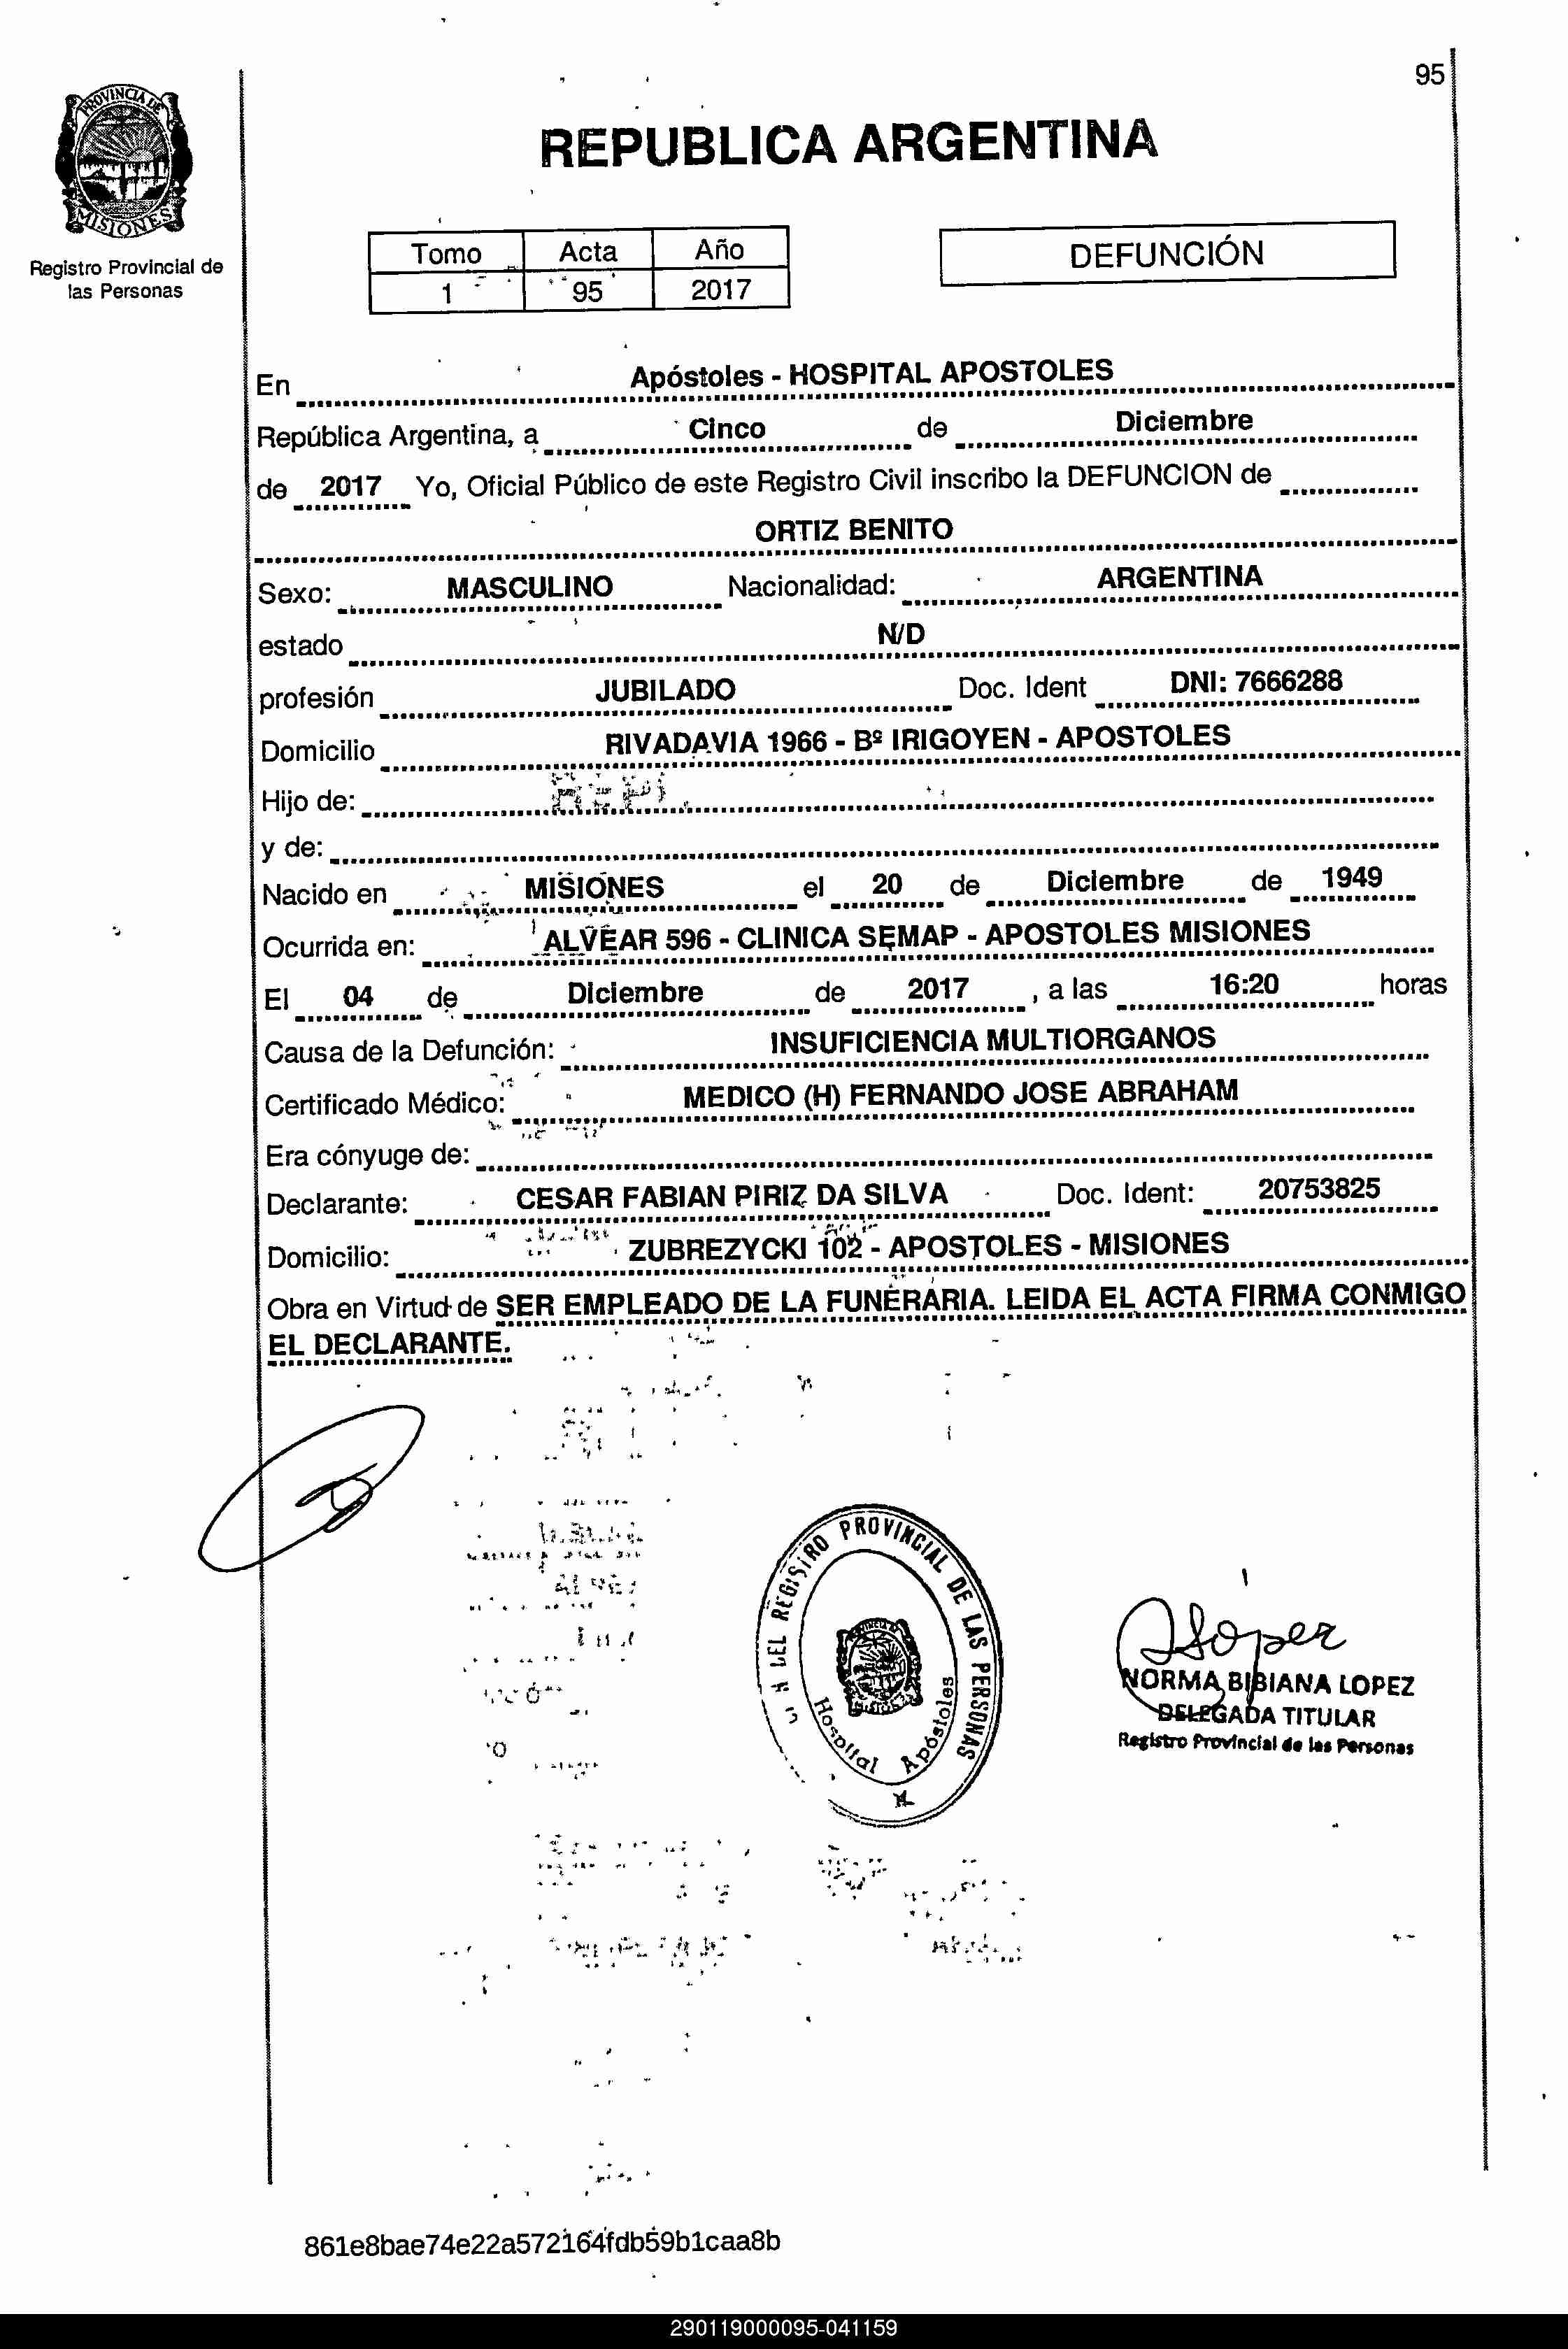 95
PROVINCIA DE
MISIONES
Registro Provincial de
las Personas
REPUBLICA ARGENTINA
Tomo Acta Año
1 95 2017
DEFUNCIÓN
En Apóstoles - HOSPITAL APOSTOLES
República Argentina, a Cinco de Diciembre
de 2017 Yo, Oficial Público de este Registro Civil inscribo la DEFUNCION de
ORTIZ BENITO
Sexo: MASCULINO Nacionalidad: ARGENTINA
estado N/D
profesión JUBILADO Doc. Ident DNI: 7666288
Domicilio RIVADAVIA 1966 - Bº IRIGOYEN - APOSTOLES
Hijo de:
y de:
Nacido en MISIONES el 20 de Diciembre de 1949
Ocurrida en: ALVEAR 596 - CLINICA SEMAP - APOSTOLES MISIONES
El 04 de Diciembre de 2017 , a las 16:20 horas
Causa de la Defunción: INSUFICIENCIA MULTIORGANOS
Certificado Médico: MEDICO (H) FERNANDO JOSE ABRAHAM
Era cónyuge de:
Declarante: CESAR FABIAN PIRIZ DA SILVA Doc. Ident: 20753825
Domicilio: ZUBREZYCKI 102 - APOSTOLES - MISIONES
Obra en Virtud de SER EMPLEADO DE LA FUNERARIA. LEIDA EL ACTA FIRMA CONMIGO
EL DECLARANTE.
DEL REGISTRO PROVINCIAL DE LAS PERSONAS
Hospital Apóstoles
Lopez
NORMA BIBIANA LOPEZ
DELEGADA TITULAR
Registro Provincial de las Personas
861e8bae74e22a572164fdb59b1caa8b
290119000095-041159